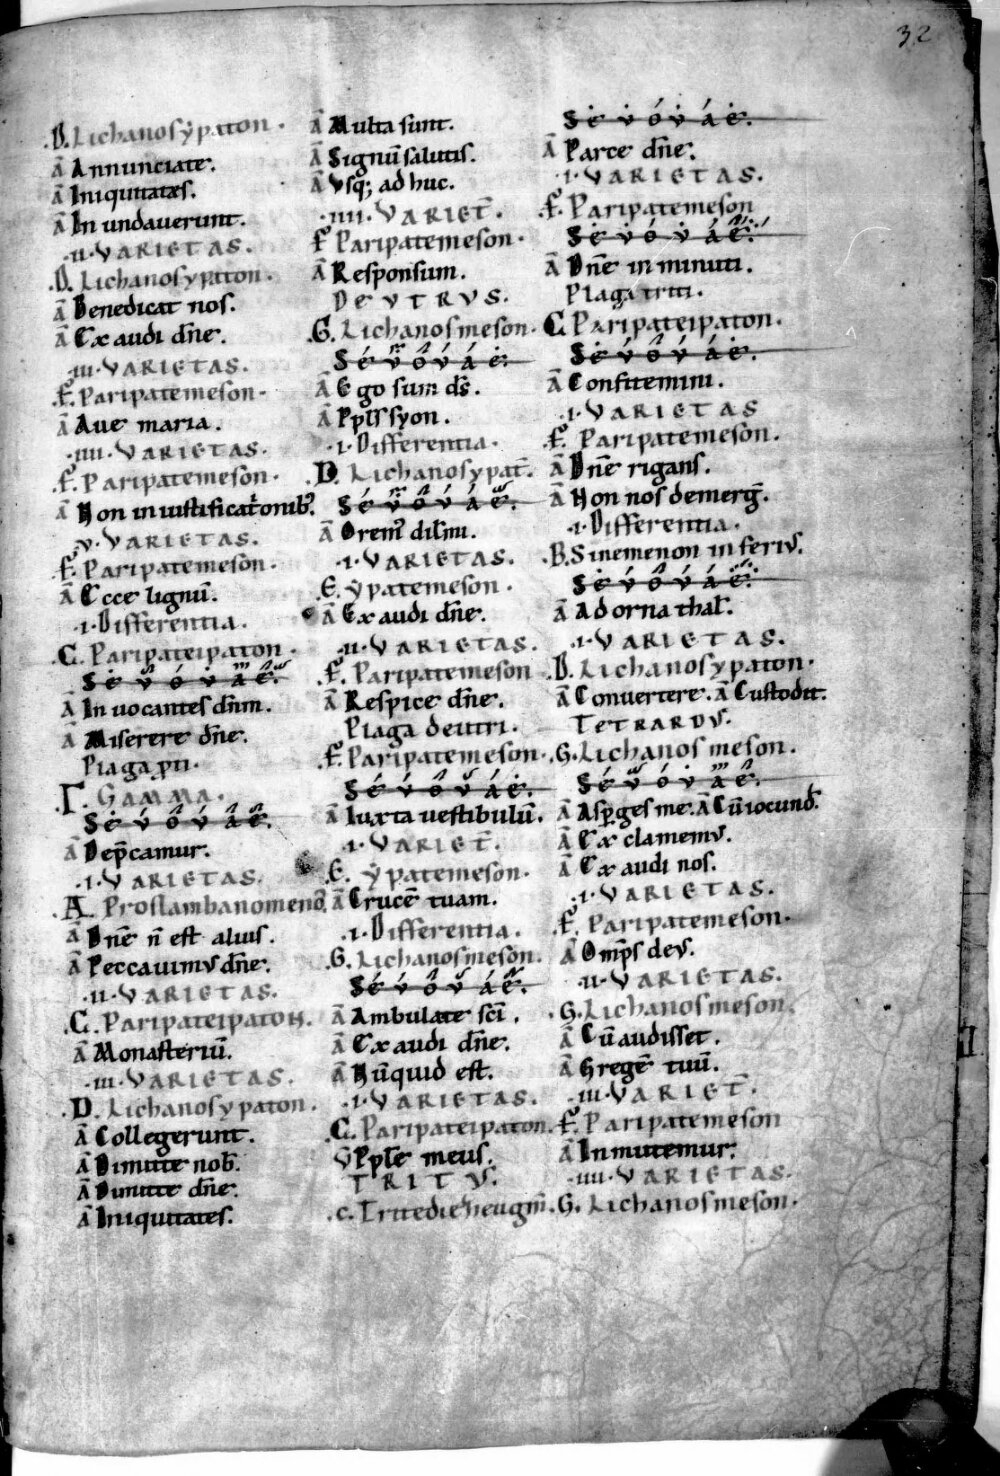 32
.D. Lichanosẏpaton.
ā Annunciate.
ā Iniquitates.
ā In undauerunt.
.II. VARIETAS.
.D. Lichanosypaton.
ā Benedicat nos.
ā Ex audi dn̄e.
.III. VARIETAS.
.F. Paripatemeson.
ā Aue maria.
.IIII. VARIETAS.
.F. Paripatemeson.
ā Non in iustificat̄onib;
.V. VARIETAS.
.F. Paripatemeson.
ā Ecce lignū.
.I. Differentia.
.C. Paripateipaton.
S e v o v a e.
ā In uocantes dn̄m.
ā Miserere dn̄e.
Plaga p̄ti.
.Γ. GAMMA.
S e v o v a e.
ā Dep̄camur.
.I. VARIETAS.
.A. Proslambanomenoꝰ.
ā Dn̄e n̄ est alius.
ā Peccauimus dn̄e.
.II. VARIETAS.
.C. Paripateipaton.
ā Monasteriū.
.III. VARIETAS.
.D. Lichanosypaton.
ā Collegerunt.
ā Dimitte nob̄.
ā Dimitte dn̄e.
ā Iniquitates.
ā Multa sunt.
ā Signū salutis.
ā Vsq; ad huc.
.IIII. VARIET̄.
.F. Paripatemeson.
ā Responsum.
DEVTRVS.
.G. Lichanosmeson.
S e v o v a e.
ā Ego sum ds̄.
ā Ppl̄s syon.
.I. Differentia.
.D. Lichanosypat̄.
S e v o v a e.
ā Oremꝰ dil̄mi.
.I. VARIETAS.
.E. ẏpatemeson.
ā Ex audi dn̄e.
.II. VARIETAS.
.F. Paripatemeson
ā Respice dn̄e.
Plaga deutri.
.F. Paripatemeson.
S e v o v a e.
ā Iuxta uestibulū.
.I. VARIET̄.
.E. ẏpatemeson.
ā Crucē tuam.
.I. Differentia.
.G. Lichanosmeson.
S e v o v a e.
ā Ambulate sc̄i.
ā Ex audi dn̄e.
ā Nūquid est.
.I. VARIETAS.
.C. Paripateipaton.
v̄ Ppl̄e meus.
TRITVS.
.c. Tritediezeugm̄.
S e v o v a e.
ā Parce dn̄e.
.I. VARIETAS.
.F. Paripatemeson
S e v o v a e.
ā Dn̄e in minuti.
Plaga triti.
.C. Paripateipaton.
S e v o v a e.
ā Confitemini.
.I. VARIETAS
.F. Paripatemeson.
ā Dn̄e rigans.
ā Non nos demerḡ.
.I. Differentia.
.B. Sinemenon inferius.
S e v o v a e.
ā Adorna thal̄.
.I. VARIETAS.
.D. Lichanosypaton.
ā Conuertere. ā Custodit.
TETRARDVS.
.G. Lichanosmeson.
S e v o v a e.
ā Asp̄ges me. ā Cū iocund̄.
ā Ex clamemus.
ā Ex audi nos.
.I. VARIETAS.
.F. Paripatemeson.
ā Omp̄s deus.
.II. VARIETAS.
.G. Lichanosmeson.
ā Cū audisset.
ā Gregē tuū.
.III. VARIET̄.
.F. Paripatemeson
ā Inmutemur.
.IIII. VARIETAS.
.G. Lichanosmeson.